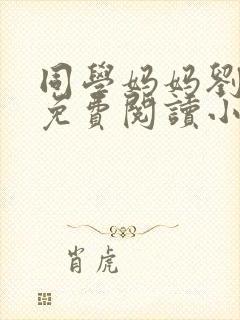 同學妈妈劉
免費閱讀小
肖虎